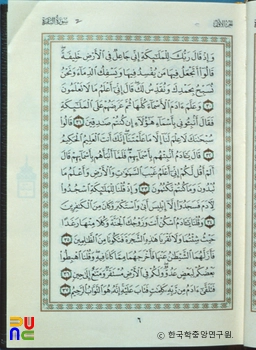 سورة البقرة
وإذ قال ربك للملئكة إني جاعل في الأرض خليفة
قالوا أتجعل فيها من يفسد فيها ويسفك الدماء ونحن
نسبح بحمدك ونقدس لك قال إني أعلم ما لا تعلمون
وعلم ءادم الأسماء كلها ثم عرضهم على الملئكة
فقال أنبئوني بأسماء هؤلاء إن كنتم صدقين قالوا
سبحنك لا علم لنا إلا ما علمتنا إنك أنت العليم الحكيم
قال يئادم أنبئهم بأسمائهم فلما أنبأهم بأسمائهم قال
ألم أقل لكم إني أعلم غيب السموت والأرض وأعلم ما
تبدون وما كنتم تكتمون وإذ قلنا للملئكة اسجدوا
لأدم فسجدوا إلا إبليس أبى واستكبر وكان من الكفرين
وقلنا يئادم اسكن أنت وزوجك الجنة وكلا منها رغدا
حيث شئتما ولا تقربا هذه الشجرة فتكونا من الظلمين
فأزلهما الشيطن عنها فأخرجهما مما كانا فيه وقلنا اهبطوا
بعضكم لبعض عدو ولكم في الأرض مستقر ومتع إلى حين
فتلقى ءادم من ربه كلمت فتاب عليه إنه هو التواب الرحيم
٦
한국학중앙연구원